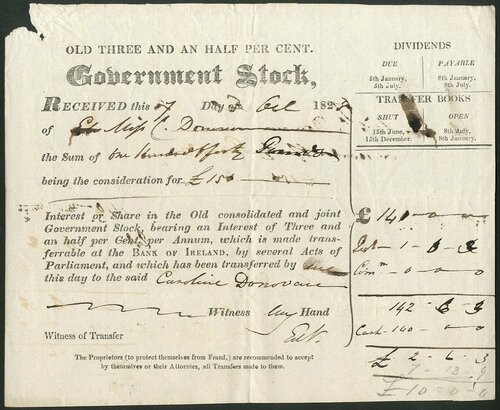 OLD THREE AND AN HALF PER CENT.
Government Stock,
RECEIVED this 7 Day of Oct 182
of Miss C. Donovan
the Sum of One Hundred & forty Pounds
being the consideration for £150
Interest or Share in the Old consolidated and joint
Government Stock, bearing an Interest of Three and
an half per Cent, per Annum, which is made trans-
ferrable at the BANK OF IRELAND, by several Acts of
Parliament, and which has been transferred by
this day to the said Caroline Donovan
Witness my Hand
Witness of Transfer
The Proprietors (to protect themselves from Fraud,) are recommended to accept
by themselves or their Attornies, all Transfers made to them.
DIVIDENDS
DUE PAYABLE
5th January, 8th January,
5th July. 8th July.
TRANSFER BOOKS
SHUT OPEN
13th June, 8th July,
15th December. 8th January.
£ 141 - - 0
1 - 6 - 3
Comm - 0 - 0 - 0
142 - 6 - 3
Cash - 140 - - 0
£ 2 - 6 - 3
7 - 13 - 9
£ 10 - 0 - 0